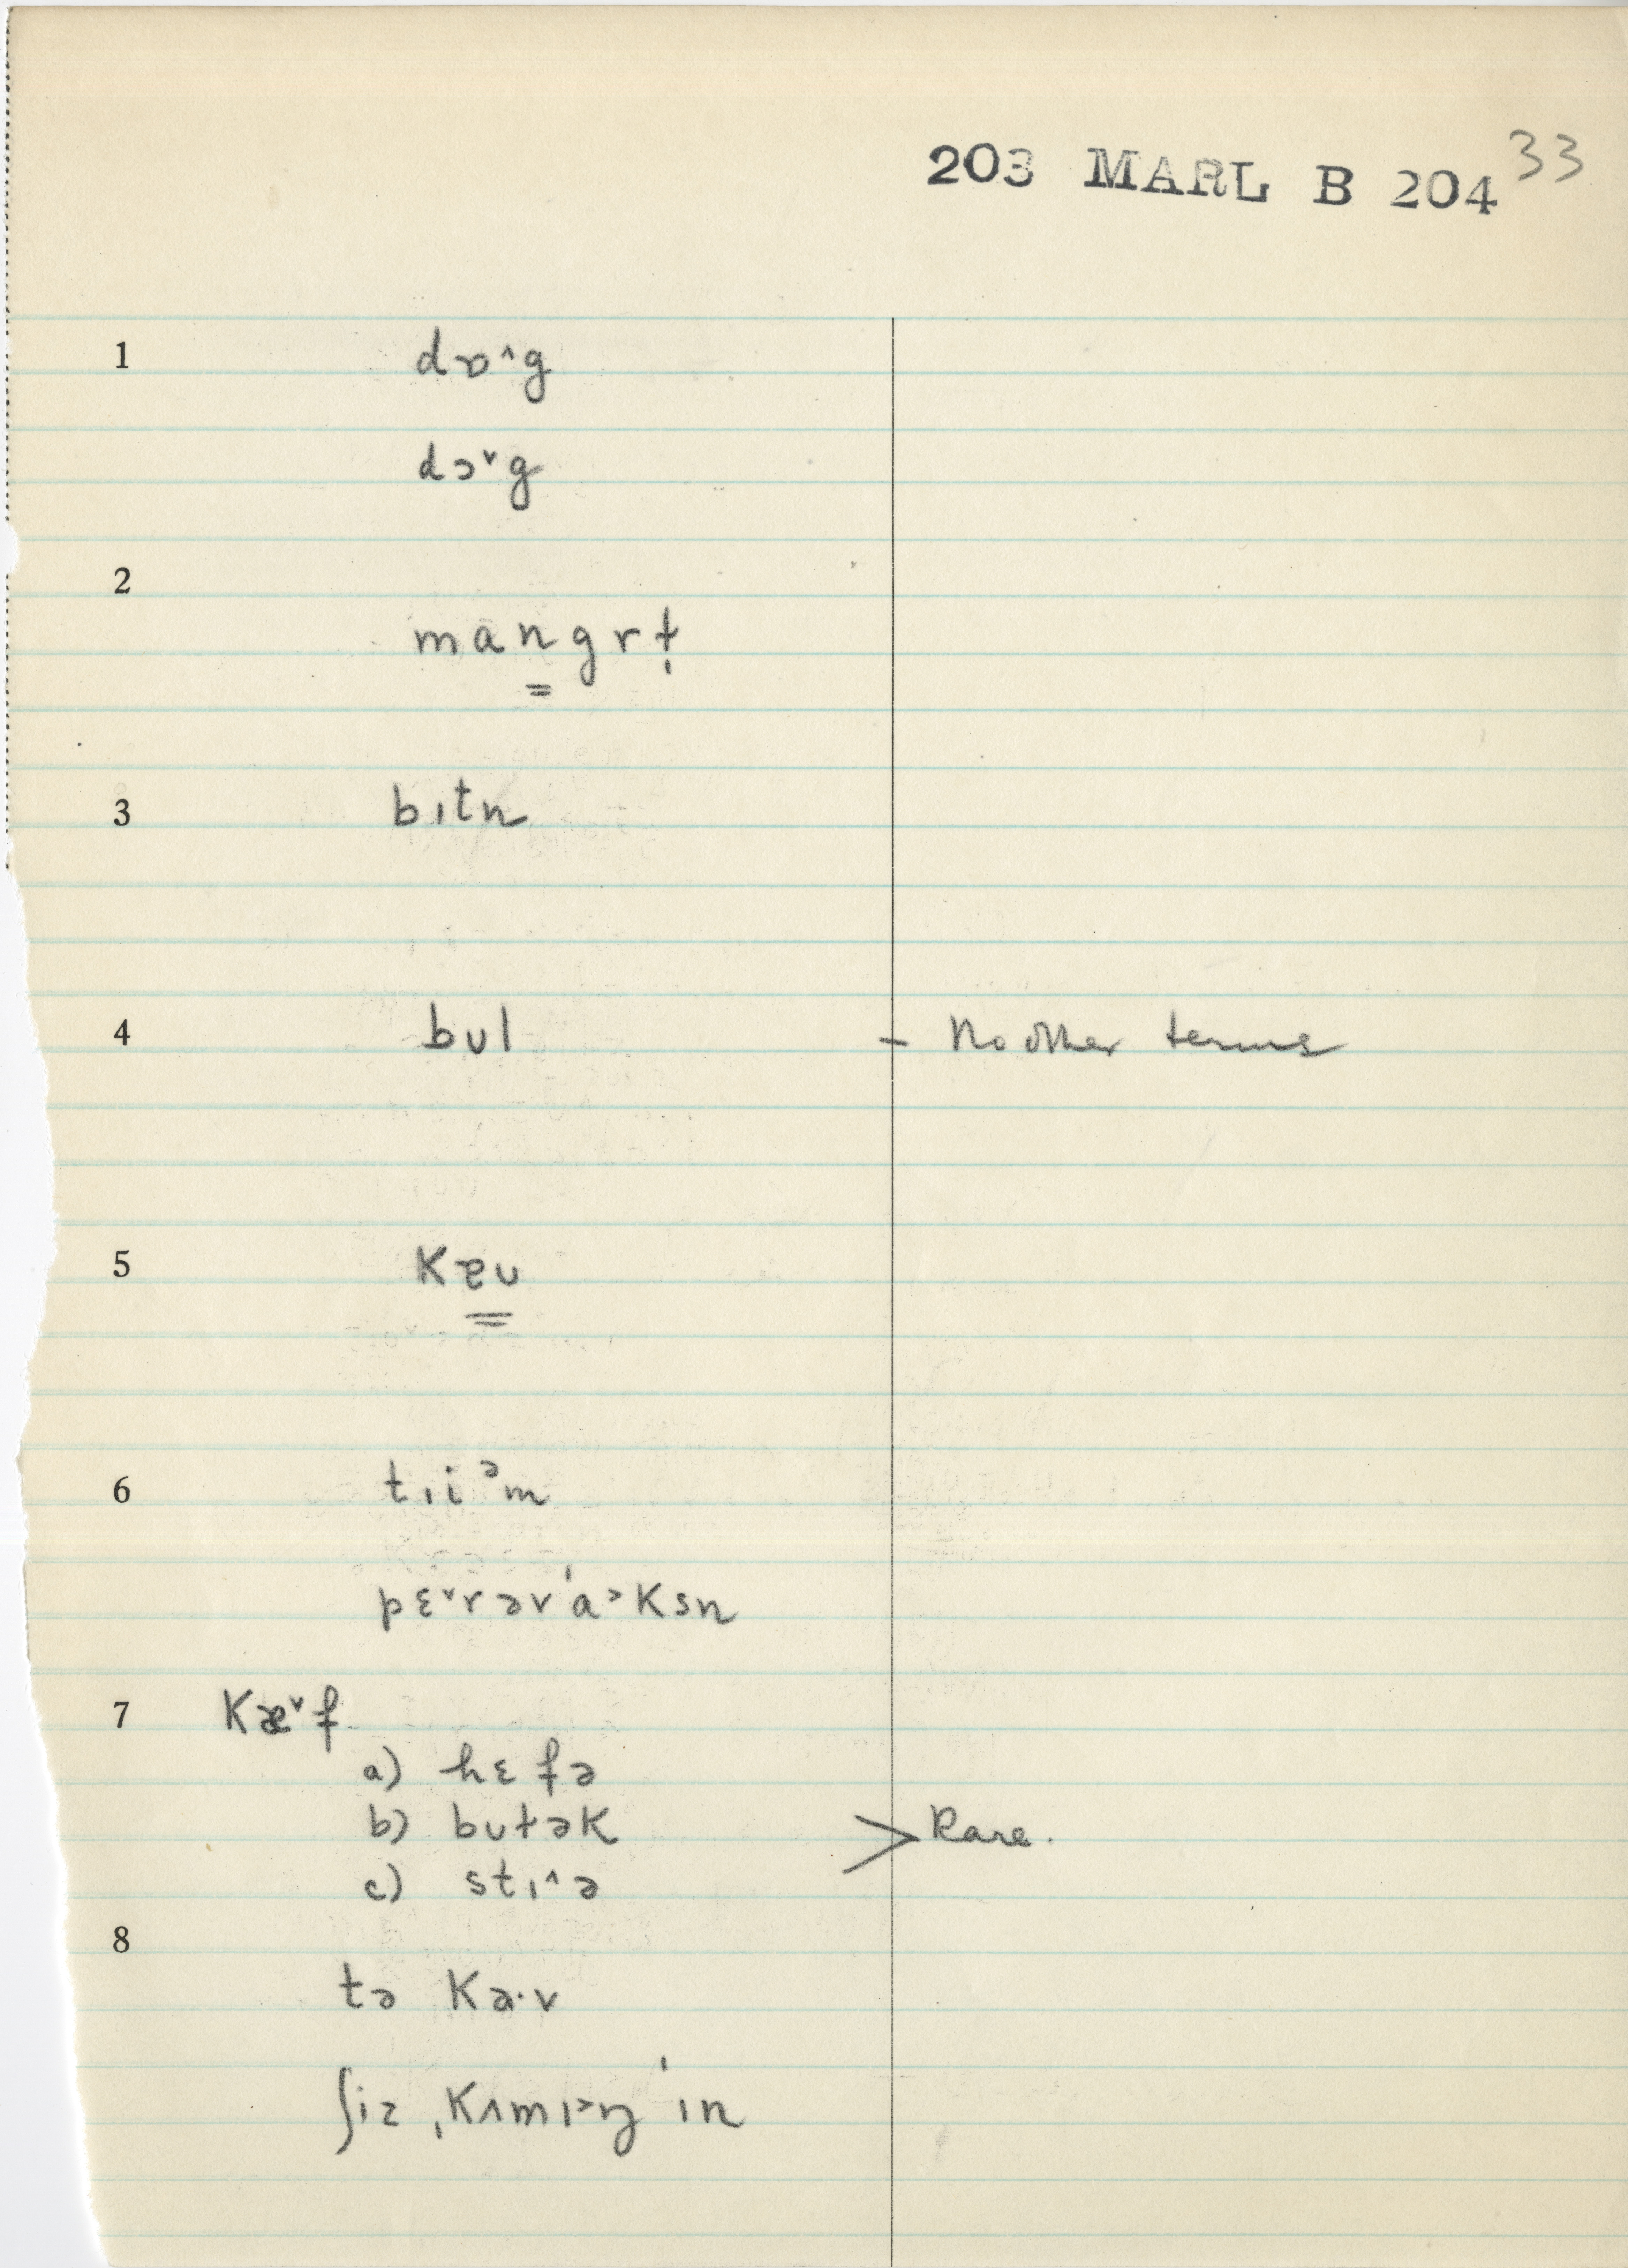 203 MARL B 204 33
1 dɒ^g
dɔ˅g
2
mangrt̬
3 bɪtn
4 bʊl – No other terms
5 kɐʊ
6 tɪiᵊm
pɛ˅rər'a˃ksn
7 kæ˅f
a) hɛfə
b) bʊtək > Rare.
c) stɪ^ə
8
tə ka·v
ʃiz ˌkʌmɪ˃ŋ 'ɪn